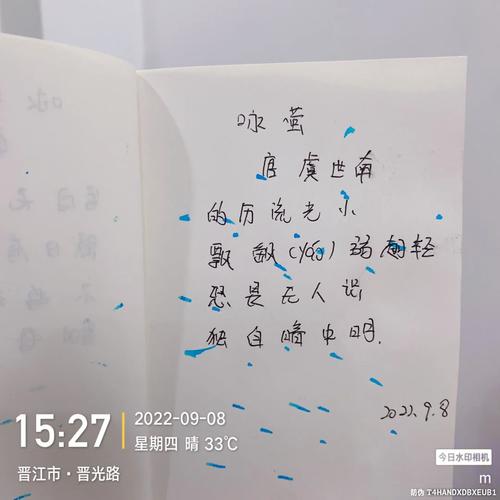 咏 萤
唐 虞 世 南
的 历 流 光 小
飘 飖(yáo)弱 翅 轻
恐 畏 无 人 识
独 自 暗 中 明.
2022.9.8
15:27
2022-09-08
星期四 晴 33℃
晋江市·晋光路
今日水印相机
m
防伪 T4HANDXDBXEUB1